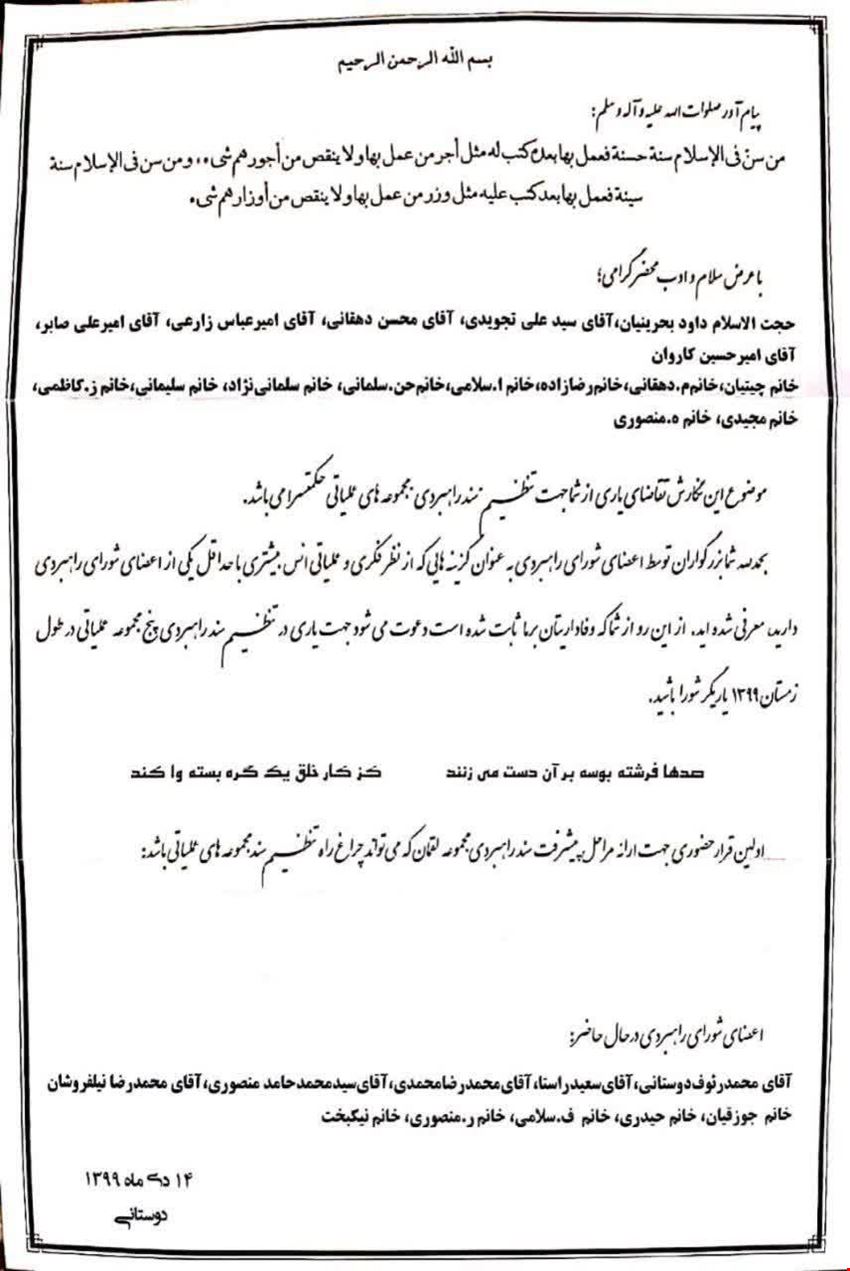 بسم الله الرحمن الرحیم
پیام آور صلوات الله علیه و آله و سلم:
من سنّ فی الإسلام سنة حسنة فعمل بها بعده کتب له مثل أجر من عمل بها ولا ینقص من أجورهم شیء، ومن سن فی الإسلام سنة
سیئة فعمل بها بعد کتب علیه مثل وزر من عمل بها ولا ینقص من أوزارهم شیء
با عرض سلام و ادب محضر گرامی؛
حجت الاسلام داود بحرینیان،آقای سید علی تجویدی، آقای محسن دهقانی، آقای امیرعباس زارعی، آقای امیرعلی صابر،
آقای امیرحسین کاروان
خانم چیتیان،خانم م.دهقانی،خانم رضازاده،خانم ا.سلامی،خانم حن.سلمانی، خانم سلمانی‌نژاد، خانم سلیمانی،خانم ز.کاظمی،
خانم مجیدی، خانم ه.منصوری
موضوع این نگارش تقاضای یاری از شما جهت تنظیم سند راهبردی مجموعه های عملیاتی حکمتسرا می باشد.
بحمدالله شما بزرگواران توسط اعضای شورای راهبردی به عنوان گزینه هایی که از نظر فکری و عملیاتی انس بیشتری با حداقل یکی از اعضای شورای راهبردی
دارید، معرفی شده اید. از این رو از شما که وفاداریتان بر ما ثابت شده است دعوت می شود جهت یاری در تنظیم سند راهبردی پنج مجموعه عملیاتی در طول
زمستان ۱۳۹۹ یاریگر شورا باشید.
صدها فرشته بوسه بر آن دست می زنند کز کار خلق یک گره بسته وا کند
اولین قرار حضوری جهت ارائه مراحل پیشرفت سند راهبردی مجموعه لقمان که می تواند چراغ راه تنظیم سند مجموعه های عملیاتی باشد:
اعضای شورای راهبردی در حال حاضر:
آقای محمدرئوف دوستانی،آقای سعید راستا، آقای محمدرضا محمدی، آقای سید محمد حامد منصوری، آقای محمدرضا نیلفروشان
خانم جوزقیان، خانم حیدری، خانم ف.سلامی، خانم ر.منصوری، خانم نیکبخت
۱۴ دی ماه ۱۳۹۹
دوستانی